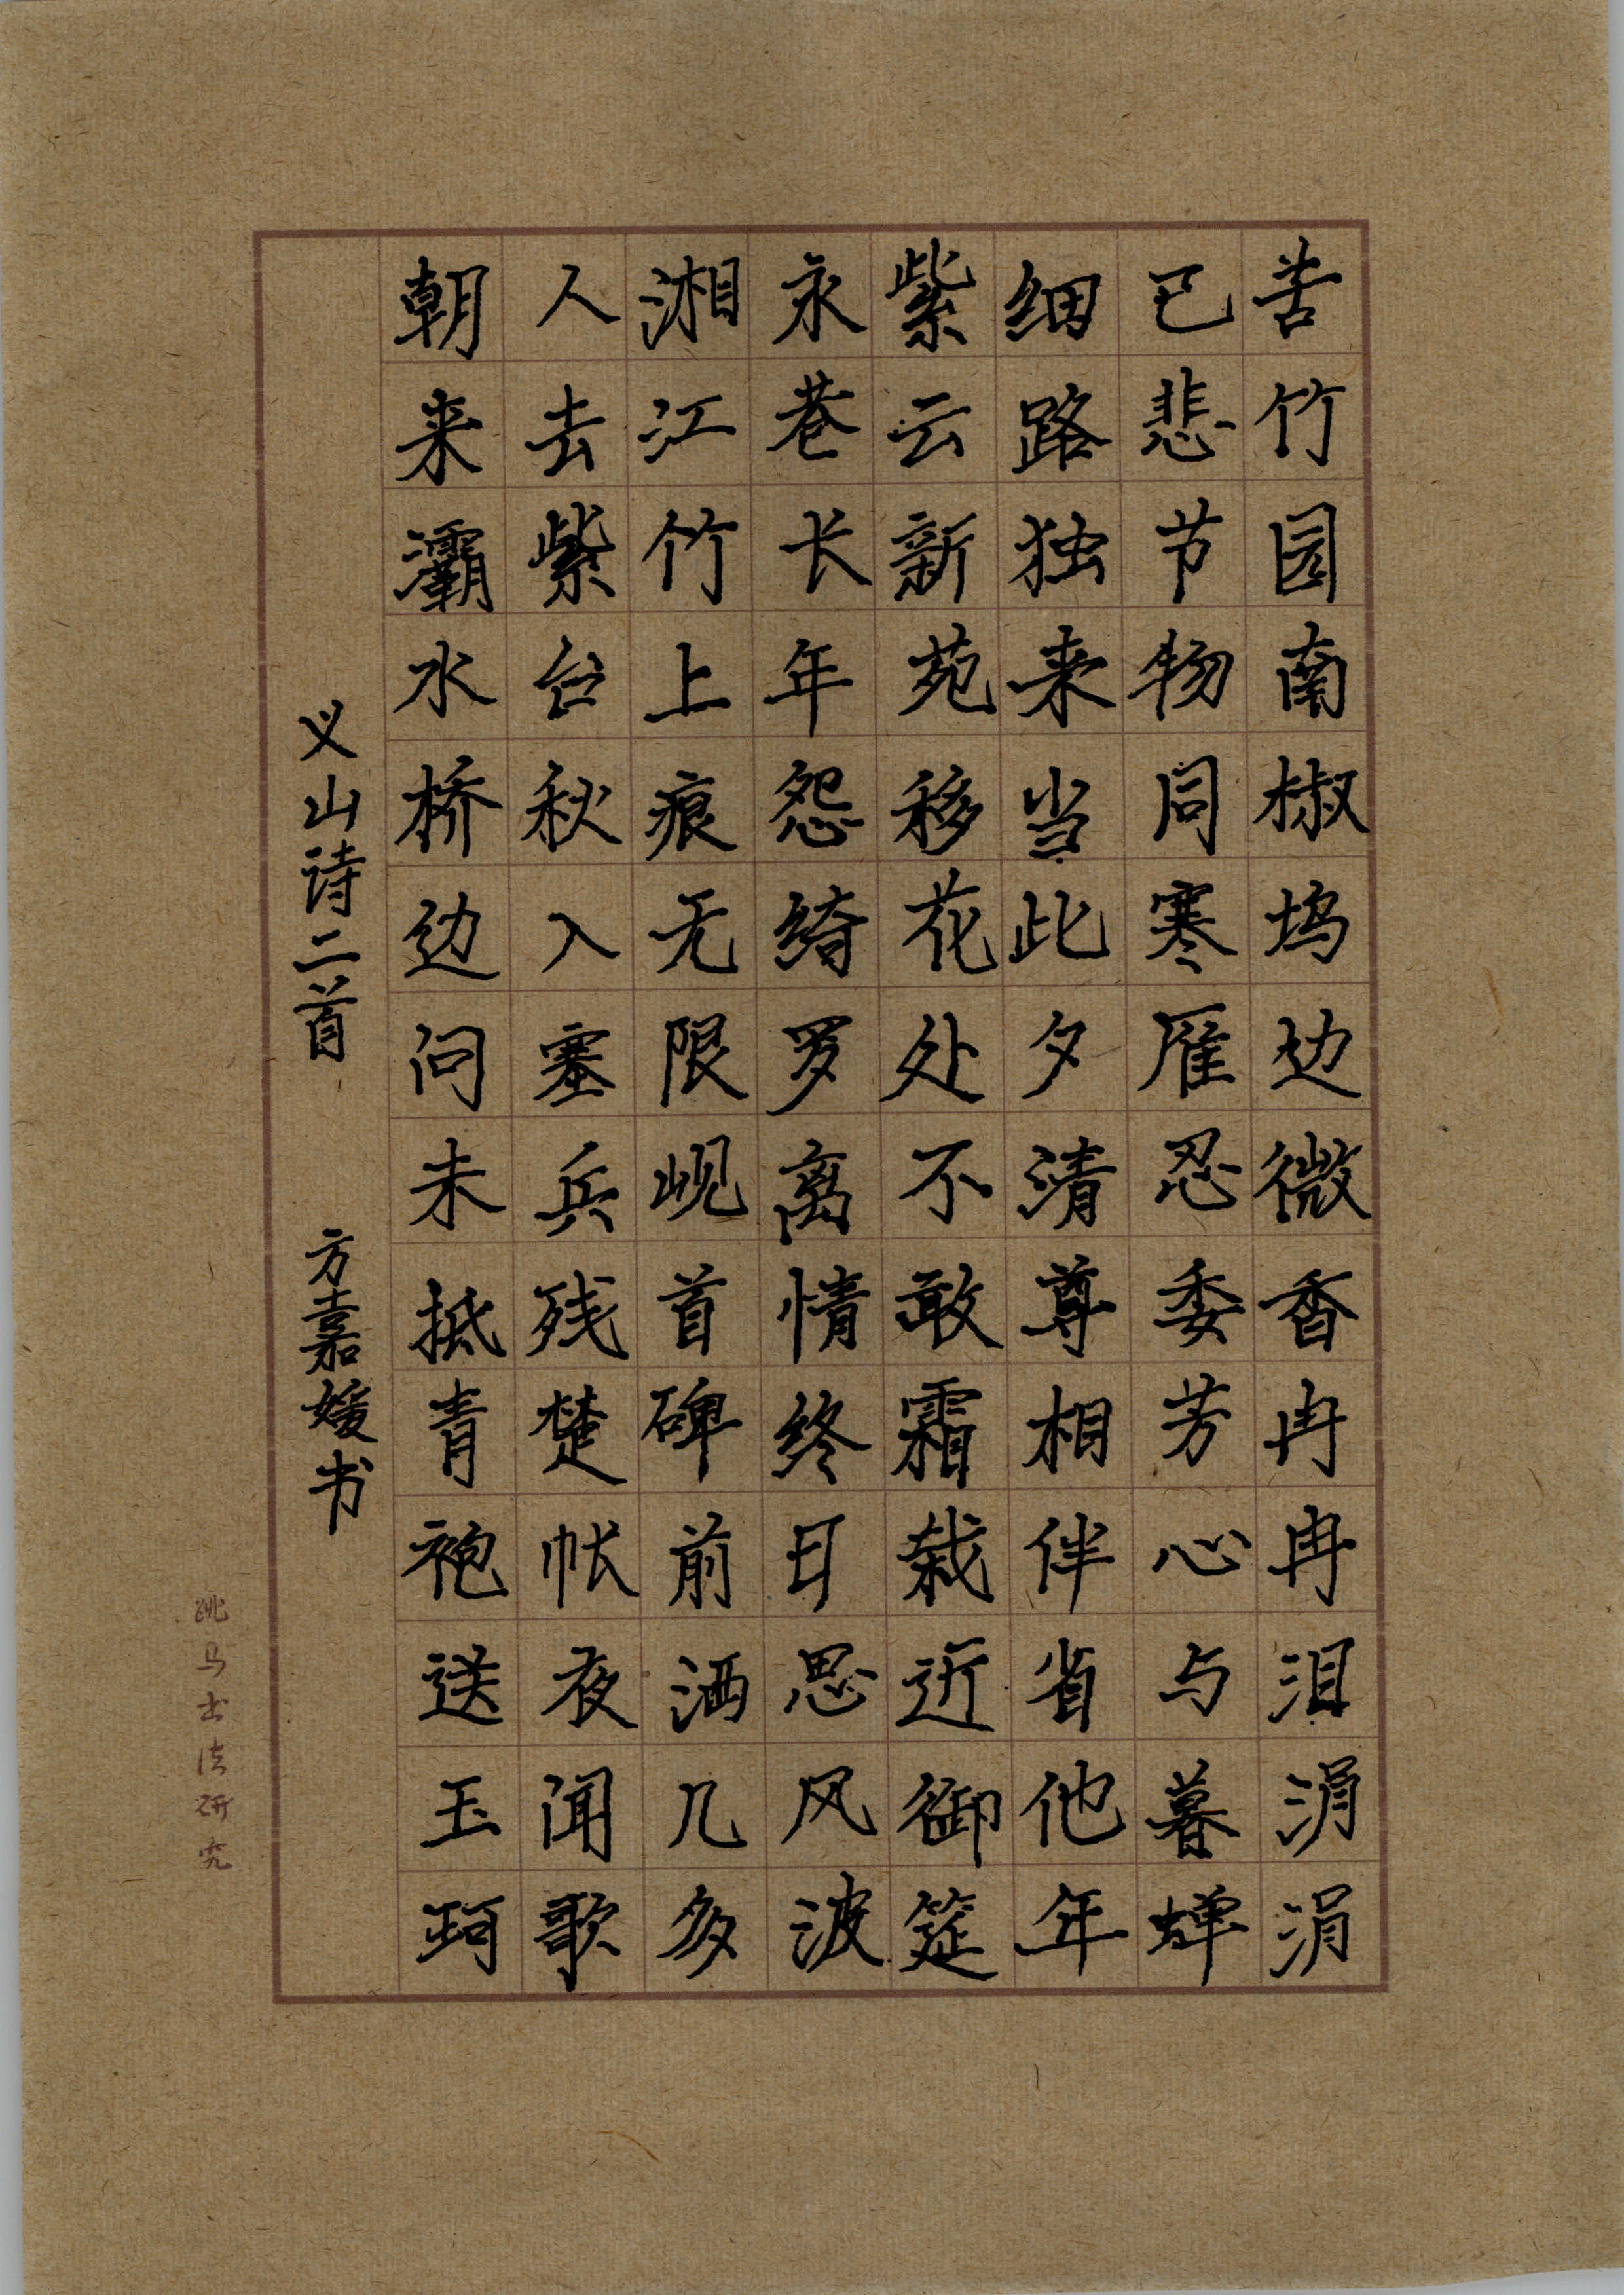 苦竹园南椒坞边微香冉冉泪涓涓
已悲节物同寒雁忍委芳心与暮蝉
细路独来当此夕清尊相伴省他年
紫云新苑移花处不敢霜栽近御筵
永巷长年怨绮罗离情终日思风波
湘江竹上痕无限岘首碑前洒几多
人去紫台秋入塞兵残楚帐夜闻歌
朝来灞水桥边问未抵青袍送玉珂
义山诗二首 方嘉媛书
跳马书法研究